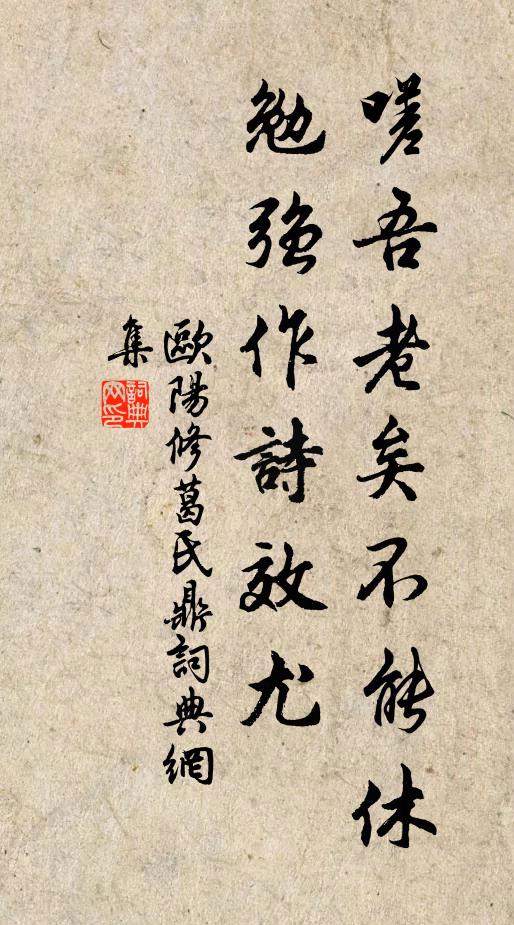 嗟吾老矣不能休
勉強作詩效尤
歐陽修葛氏鼎詞典網
集
詞典網印